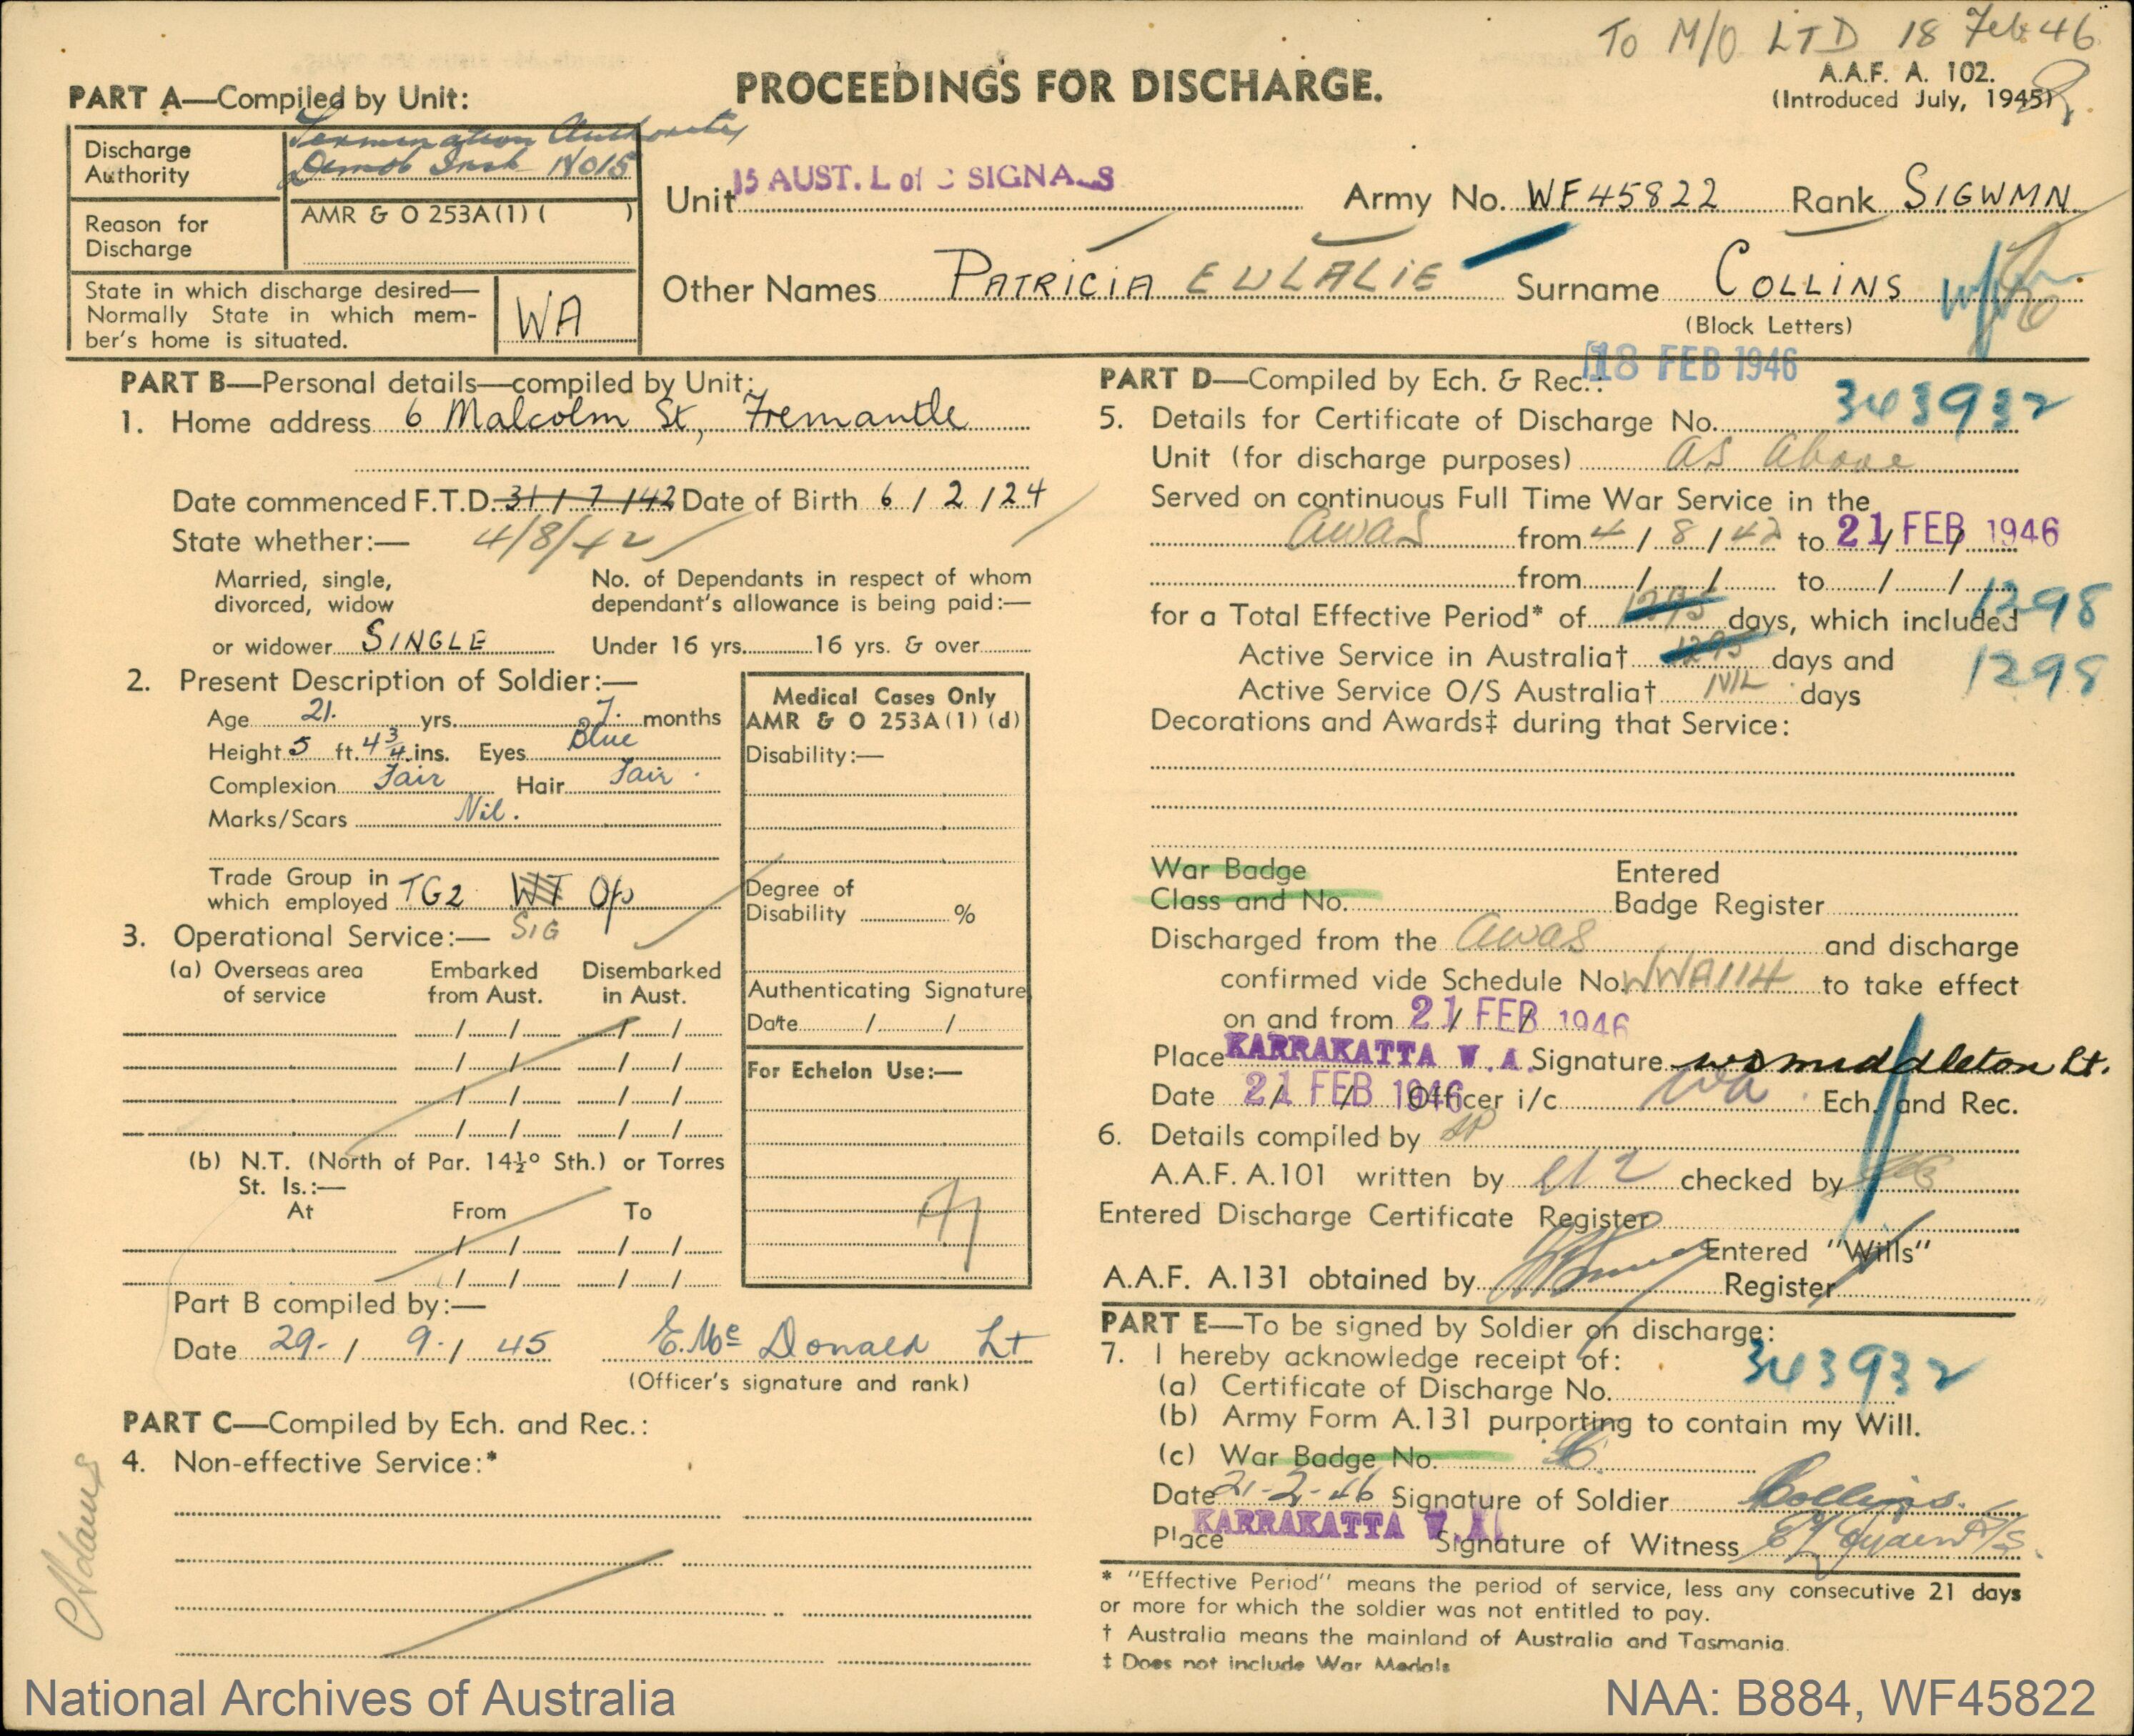 To M/O LTD 18 Feb 46
A.A.F. A. 102.
(Introduced July, 1945)
PROCEEDINGS FOR DISCHARGE.
PART A—Compiled by Unit:
Discharge Authority
Termination Authority
Demob Inst No 15
Reason for Discharge
AMR & O 253A(1) ( )
State in which discharge desired—
Normally State in which mem-
ber's home is situated.
WA
Unit 15 AUST. L of C SIGNALS Army No. WF45822 Rank SIGWMN
Other Names PATRICIA EULALIE Surname COLLINS
(Block Letters)
PART B—Personal details—compiled by Unit:
1. Home address 6 Malcolm St, Fremantle
Date commenced F.T.D. 31/7/42 Date of Birth 6/2/24
State whether:— 4/8/42
Married, single,
divorced, widow
or widower SINGLE
No. of Dependants in respect of whom
dependant's allowance is being paid:—
Under 16 yrs. 16 yrs. & over
2. Present Description of Soldier:—
Age 21. yrs. 7. months
Height 5 ft. 4 3/4 ins. Eyes Blue
Complexion Fair Hair Fair
Marks/Scars Nil.
Trade Group in
which employed TG2 WT Op
SIG
Medical Cases Only
AMR & O 253A(1) (d)
Disability:—
Degree of
Disability %
Authenticating Signature
Date / /
For Echelon Use:—
3. Operational Service:—
(a) Overseas area of service
Embarked from Aust.
Disembarked in Aust.
/ / / /
/ / / /
/ / / /
/ / / /
(b) N.T. (North of Par. 14½° Sth.) or Torres
St. Is.:—
At From To
/ / / /
/ / / /
Part B compiled by:—
Date 29. / 9. / 45 E. McDonald Lt
(Officer's signature and rank)
PART C—Compiled by Ech. and Rec.:
4. Non-effective Service:*
CAdams
18 FEB 1946
PART D—Compiled by Ech. & Rec.:
5. Details for Certificate of Discharge No. 343932
Unit (for discharge purposes) as above
Served on continuous Full Time War Service in the
AWAS from 4/8/42 to 21 FEB 1946
from / / to / /
for a Total Effective Period* of 1295 days, which included 1298
Active Service in Australia† 1295 days and 1298
Active Service O/S Australia† NIL days
Decorations and Awards‡ during that Service:
War Badge
Class and No.
Entered
Badge Register
Discharged from the AWAS and discharge
confirmed vide Schedule No. WWA114 to take effect
on and from 21 FEB 1946
Place KARRAKATTA W.A. Signature Middleton Lt.
Date 21 FEB 1946 Officer i/c WA Ech. and Rec.
6. Details compiled by
A.A.F. A.101 written by checked by
Entered Discharge Certificate Register
A.A.F. A.131 obtained by
Entered "Wills"
Register
PART E—To be signed by Soldier on discharge:
7. I hereby acknowledge receipt of:
(a) Certificate of Discharge No. 343932
(b) Army Form A.131 purporting to contain my Will.
(c) War Badge No.
Date 21-2-46 Signature of Soldier Collins.
Place KARRAKATTA W.A. Signature of Witness
* "Effective Period" means the period of service, less any consecutive 21 days
or more for which the soldier was not entitled to pay.
† Australia means the mainland of Australia and Tasmania.
‡ Does not include War Medals
National Archives of Australia
NAA: B884, WF45822